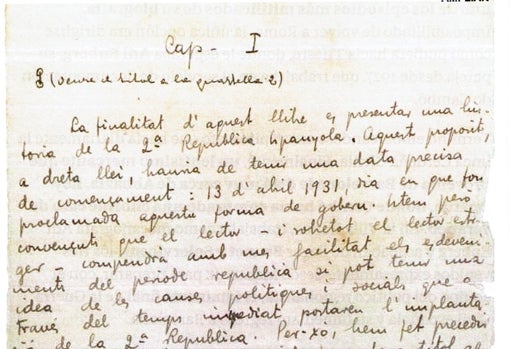 Cap - I
(veure el títol a la quartella 2)
La finalitat d'aquest llibre es presentar una his-
toria de la 2ª República Espanyola. Aquest proposit,
a dreta llei, hauria de tenir una data precisa
de començament: 13 d'abril 1931, dia en que fou
proclamada aquesta forma de govern. Item però
convençuts que el lector - i sobretot el lector estran-
ger - compendrà amb mes facilitat els esdeveni-
ments del periode republicà si pot tenir una
idea de les causes politiques i socials que a
traves del temps immediat portaren l'implanta-
de la 2ª Republica. Per xo, hem fet precedir